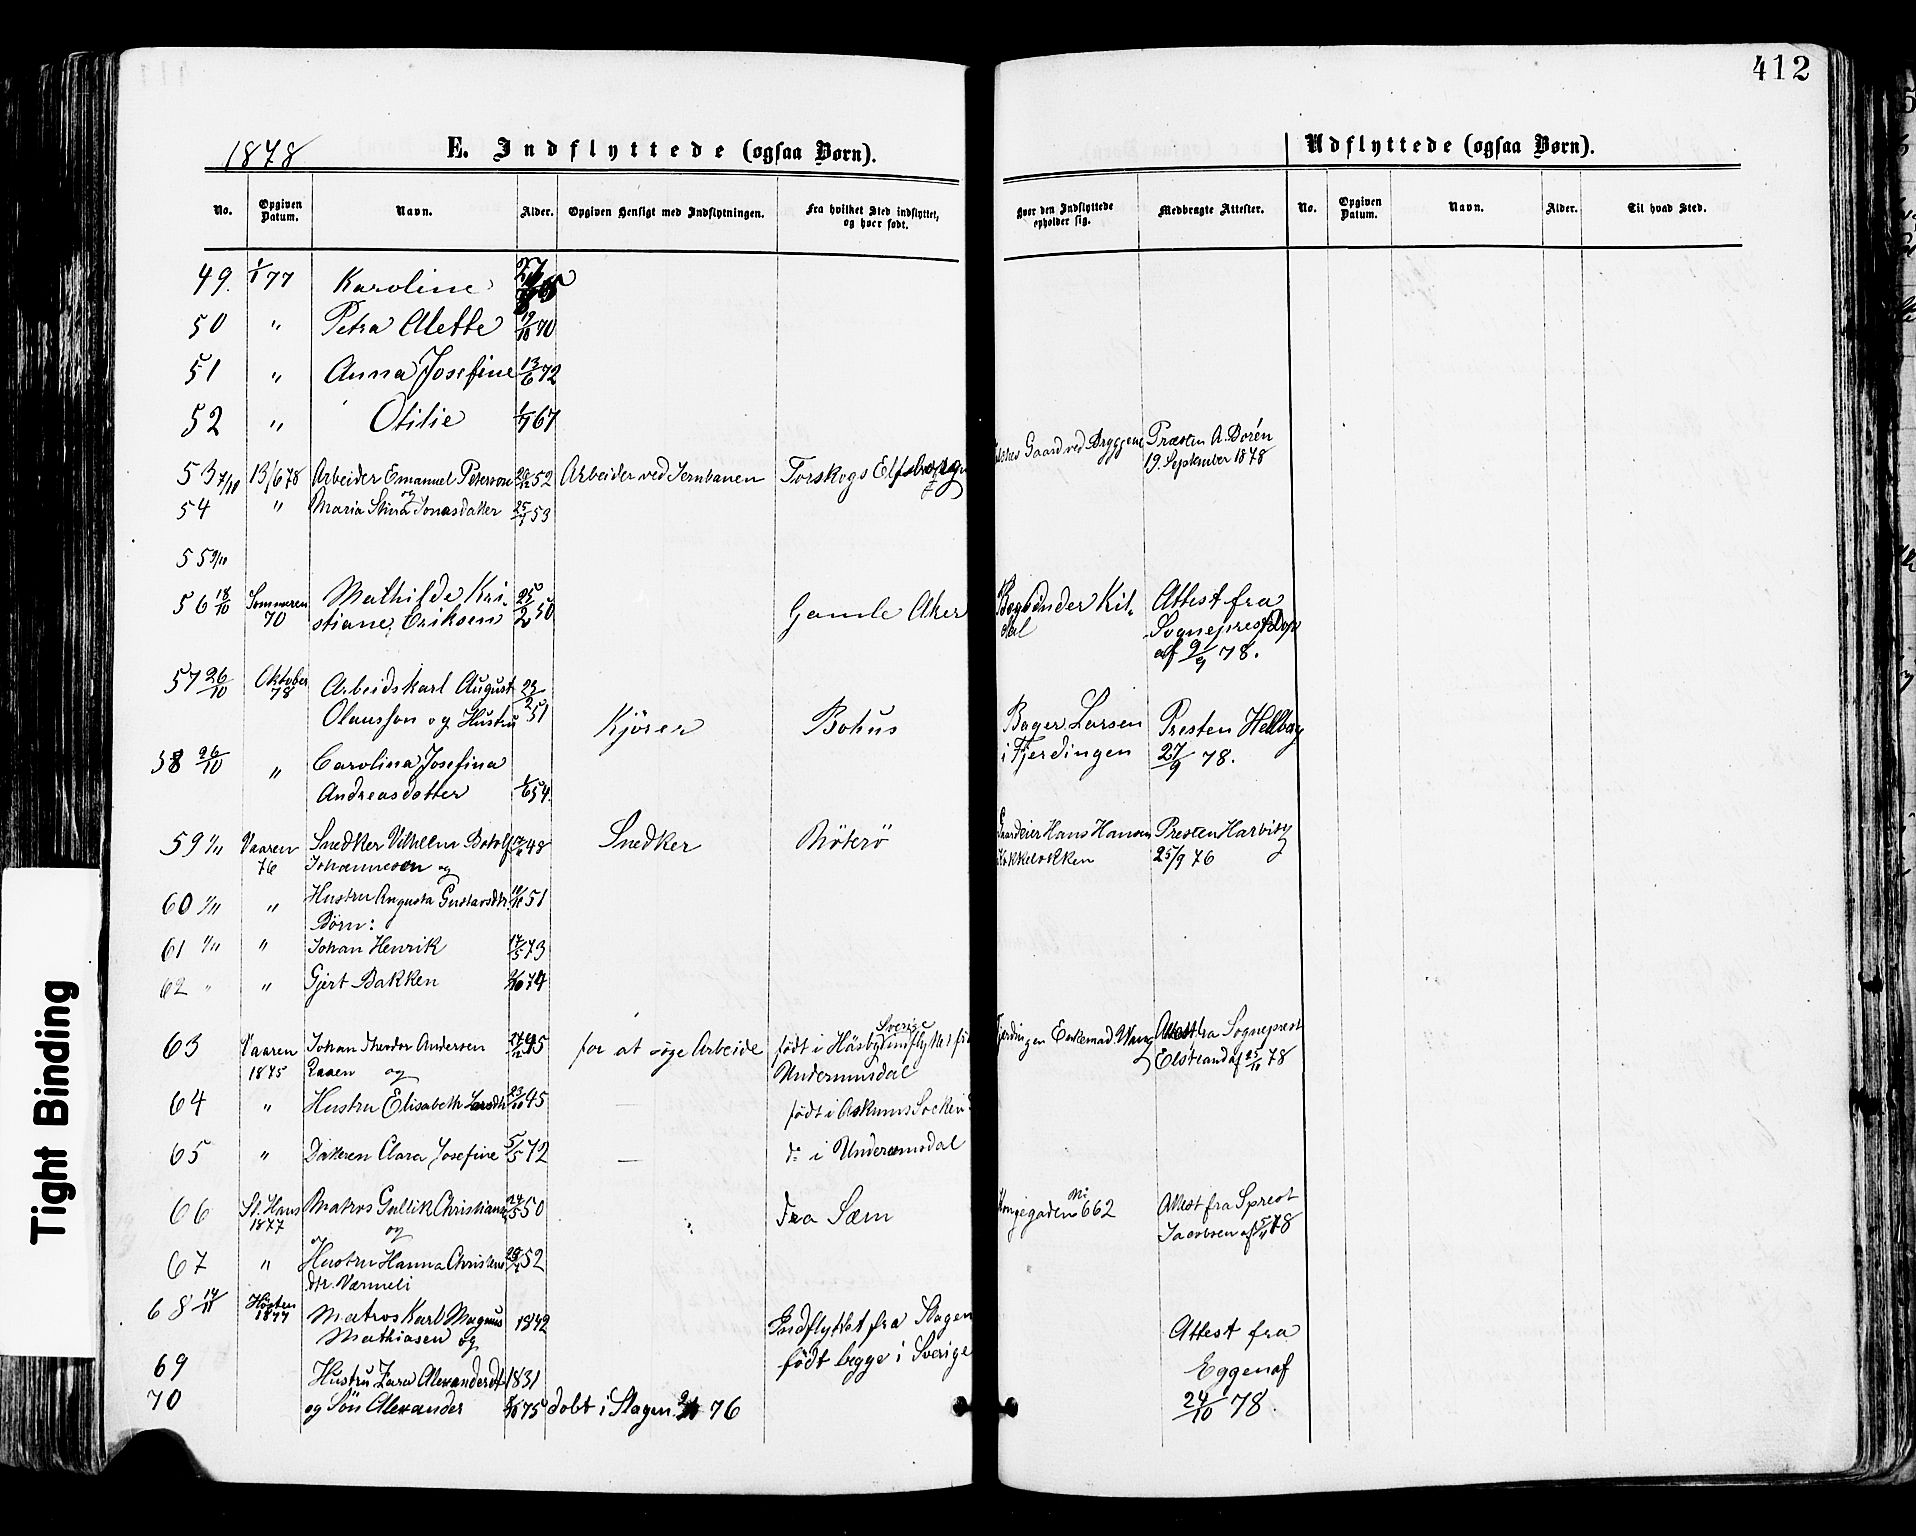 412
1878 E. Indflyttede (ogsaa Børn). Udflyttede (ogsaa Børn).
No. Opgiven Datum. Navn. Alder. Opgiven Hensigt med Indflytningen. Fra hvilket Sted indflyttet, og hvor født. Hvor den Indflyttede opholder sig. Medbragte Attester. No. Opgiven Datum. Navn. Alder. Til hvad Sted.
49. 1/1 77 Karoline
50 " Petra Alette 19/10 70
51 " Anna Josefine 13/6 72
52 " Otilie 1/7 67
53 7/10 13/6 78 Arbeider Emanuel Peterson 28/12 52 Arbeider ved Jernbanen Torskogs Elfsborg Gaard ved Bryggene Præsten A. Dorén
19. September 1878
og
54 " Maria Stina Jonasdatter 25/7 53
55 9/10
56 18/10 Sommeren Mathilde Kri- 25/2 50 Gamle Aker Attest fra
70 stiane Eriksen dal Sogneprest
af 9/9 78.
57 26/10 Oktober Arbeidskarl August 23/2 51
78 Olausson og Hustru Kjører Bohus Bager Larsen Presten Hellbag
58 26/10 " Carolina Josefina i Fjerdingen 27/9 78.
Andreasdotter 1/6 54.
59 1/11 Vaaren Snedker Vilhelm Botolf 48 Snedker Nøterø Gaardeier Hans Hansen Presten Harbitz
76 Johannesen og 25/9 76
60 1/11 " Hustru Augusta Gustavsdtr. 51
Børn:
61 1/11 " Johan Henrik 17/5 73
62 " " Gjert Bakken 74
63 Vaaren Johan Theodor Andersen 45 for at søge Arbeide født i Håsby Sverige indflyttet fra Fjerdingen Enkemad. Attest fra Sogneprest
1875 og Undermunsdal Elstrand af 25/10 78
64 " Hustru Elisabeth Larsdtr 23/10 45 — født i Askums Socken
65 " Datteren Clara Josefine 5/5 72 — do i
66 St. Hans Matros Gullik Christians 24/5 50 fra Sæm Kongegaden No 662 Attest fra Sprest
1877 og Jacobsen af 78
67 " Hustru Hanna Christens 52
dtr. Værmeli
68 14/11 Høsten Matros Karl Magnus 1842 Indflyttet fra Slagen Attest fra
1877 Mathiasen og født begge i Sverige
69 Hustru Zara Alexandersdtr 1831 Eggen af
70 og Søn Alexander 75 døbt i Slagen 76 24/10 78.
Tight Binding